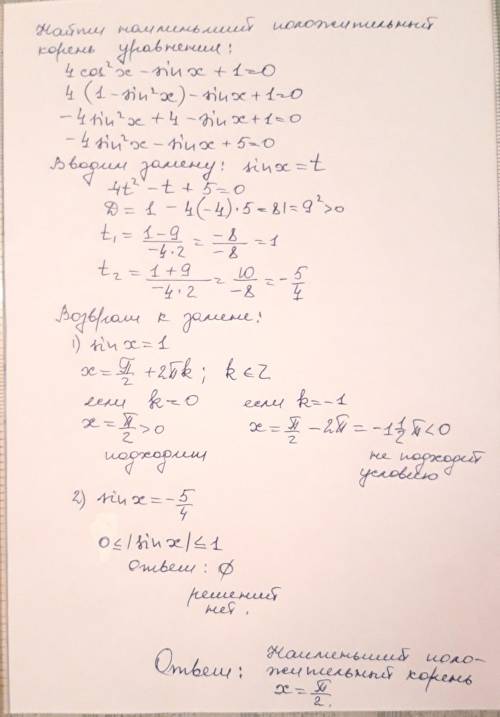 Найти наименьший положительный
корень уравнения:
4 cos²x - sinx + 1 = 0
4 (1 - sin²x) - sinx + 1 = 0
-4 sin²x + 4 - sinx + 1 = 0
-4 sin²x - sinx + 5 = 0
Вводим замену: sinx = t
4t² - t + 5 = 0
D = 1 - 4(-4)·5 = 81 = 9² > 0
t₁ = (1-9)/(-4·2) = -8/-8 = 1
t₂ = (1+9)/(-4·2) = 10/-8 = -5/4
Возврат к замене:
1) sinx = 1
x = π/2 + 2πk; k ∈ Z
если k = 0 если k = -1
x = π/2 > 0 x = π/2 - 2π = -1 1/2 π < 0
подходит не подходит
условию
2) sinx = -5/4
0 ≤ |sinx| ≤ 1
Ответ: ∅
решений
нет.
Ответ: Наименьший поло-
жительный корень
x = π/2.